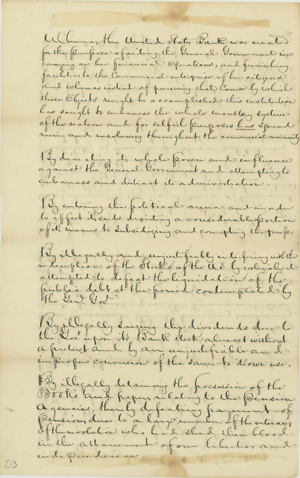 Whereas the United States Bank was created
for the purpose of aiding the General Government in
carrying on her financial operations, and furnishing
facilities to the Commercial enterprise of her citizens
and whereas instead of pursuing that Course by which
these Objects might be accomplished this institution
has sought to embarrass the whole monetary system
of the nation and for selfish purposes has spread
ruin and insolvency throughout the commercial community
By directing its whole power and influence
against the General Government and attempting to
embarrass and distract its administration.
By entering the political arena and in order
to effect its ends devoting a considerable portion
of its means to subsidizing and corrupting the press.
By illegally and unjustifiably interfering with the
redemption of the Stocks of the US by which it
attempted to defeat the liquidation of the
public debt at the period contemplated by
the Genl Govt
By illegally seizing the dividends due to
the Gov upon its Bank stock almost without
a pretext and by an unjustifiable and
improper conversion of the same to its own use.
By illegally detaining the possession of the
Books and papers relating to the Pension
Agencies, thereby defeating payment of
pensions due to a large number of the veterans
of the revolution who had shed their blood
in the attainment of our liberties and
independence